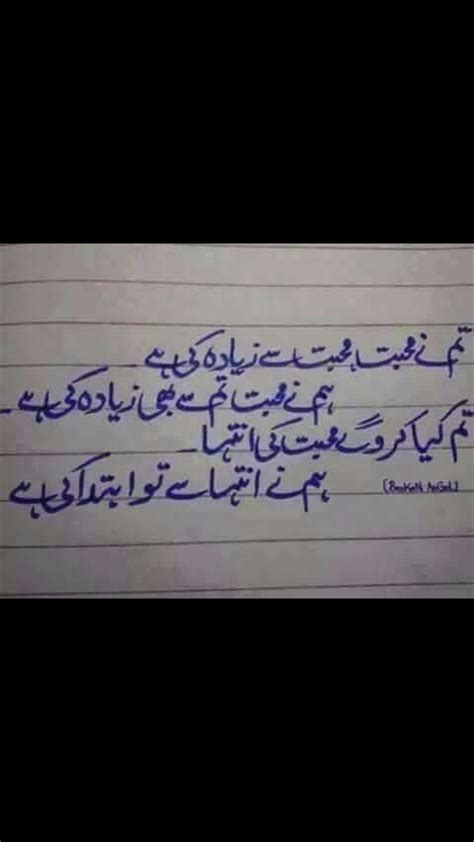 تم نے محبت، محبت سے زیادہ کی ہے
ہم نے محبت تم سے بھی زیادہ کی ہے۔
تم کیا کرو گے محبت کی انتہا۔
ہم نے انتہا سے تو ابتدا کی ہے
(BroKeN AnGeL)